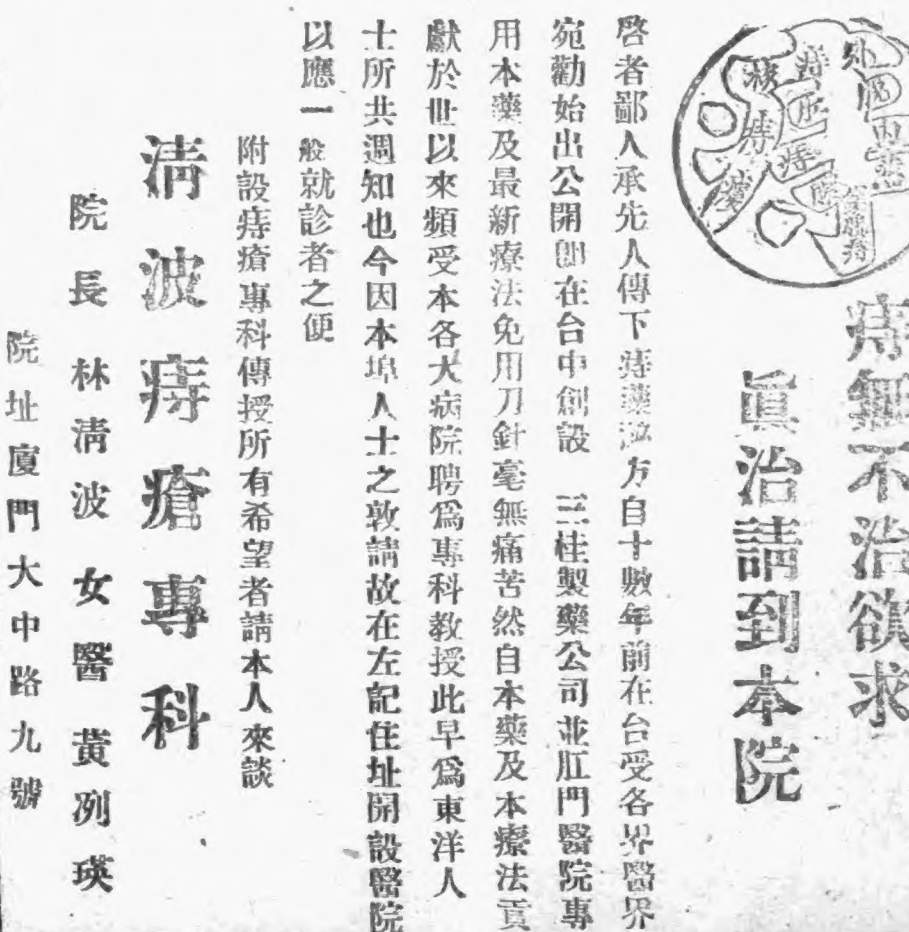 痔無不治欲求
眞治請到本院
啓者鄙人承先人傳下痔藥秘方自十數年前在台受各界醫界
宛勸始出公開卽在台中創設 三桂製藥公司並肛門醫院專
用本藥及最新療法免用刀針毫無痛苦然自本藥及本療法貢
獻於世以來頻受本各大病院聘爲專科教授此早爲東洋人
士所共週知也今因本埠人士之敦請故在左記住址開設醫院
以應一般就診者之便
附設痔瘡專科傳授所有希望者請本人來談
清波痔瘡專科
院長 林清波 女醫 黃列瑛
院址廈門大中路九號